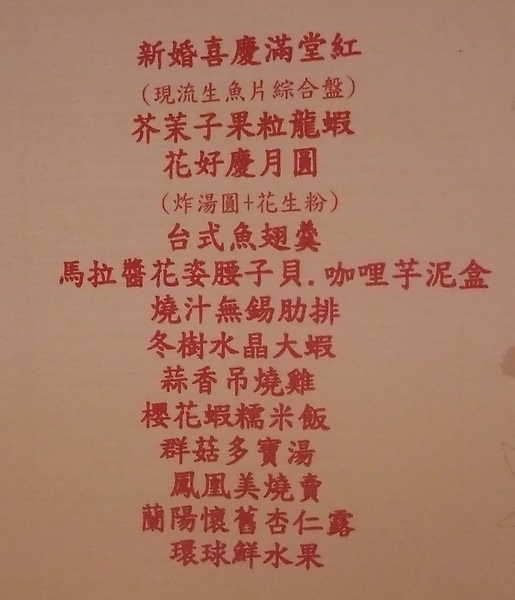 新婚喜慶滿堂紅
(現流生魚片綜合盤)
芥茉子果粒龍蝦
花好慶月圓
(炸湯圓+花生粉)
台式魚翅羹
馬拉醬花姿腰子貝.咖哩芋泥盒
燒汁無錫肋排
冬樹水晶大蝦
蒜香吊燒雞
櫻花蝦糯米飯
群菇多寶湯
鳳凰美燒賣
蘭陽懷舊杏仁露
環球鮮水果